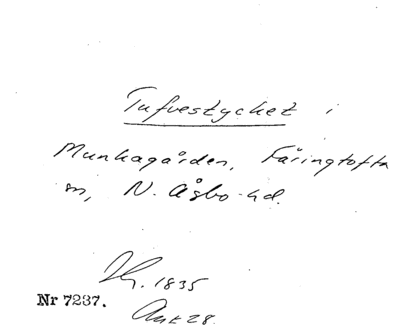 Tufvestycket i
Munkagården, Färingtofta
sn, N. Åsbo hd.
1835
Nr 7237.
Ank 28.